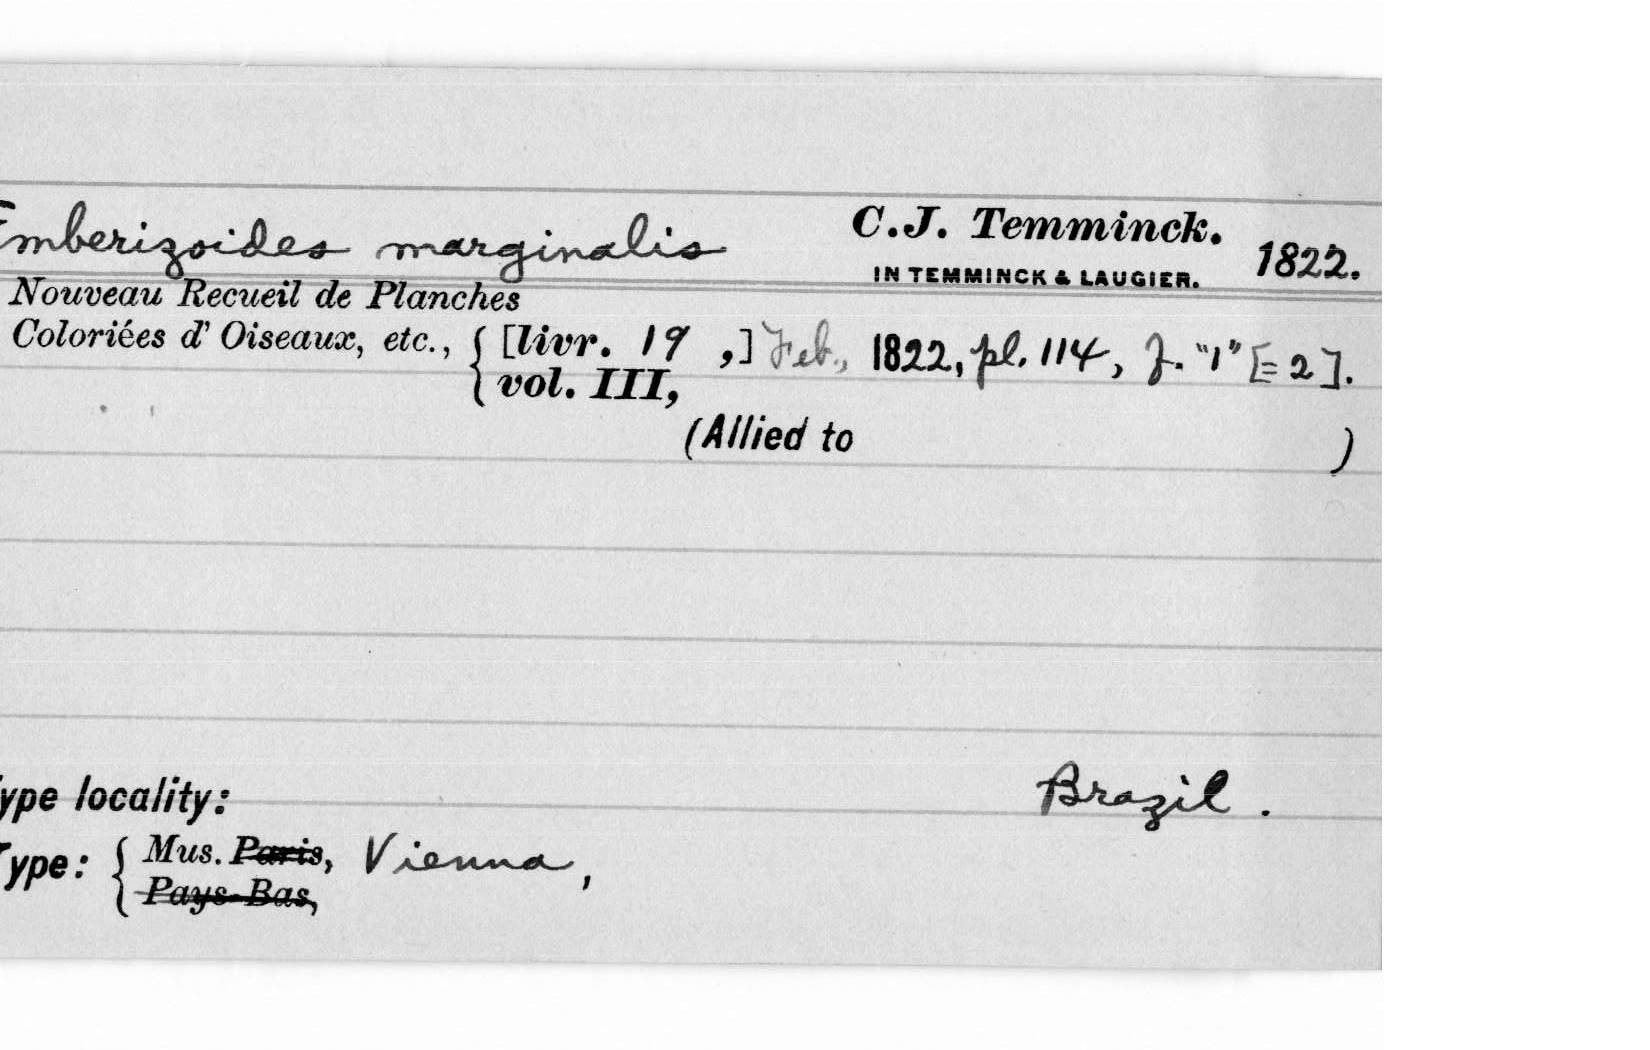 Emberizoides marginalis C.J. Temminck. 1822.
IN TEMMINCK & LAUGIER.
Nouveau Recueil de Planches
Coloriées d' Oiseaux, etc., { [livr. 19 ,] Feb., 1822, pl. 114, f. "1" [= 2].
vol. III,
(Allied to )
ype locality: Brazil.
Type: { Mus. Paris, Vienna,
Pays-Bas,